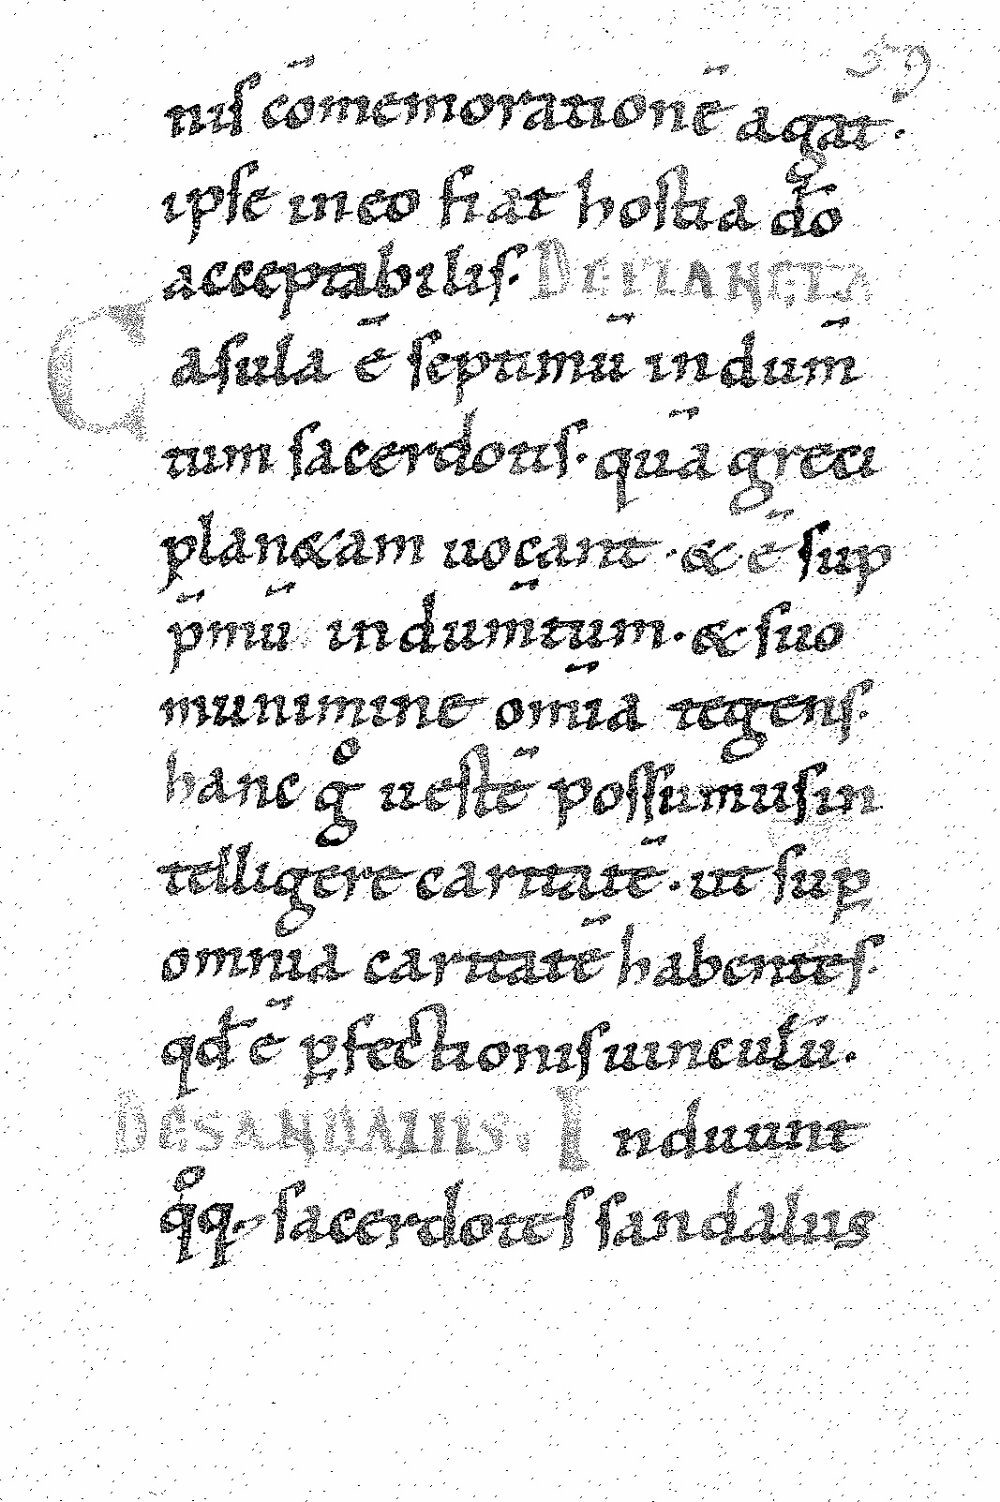 59
nis cōmemorationē agat.
ipse in eo fiat hostia dō
acceptabilis. DE PIANETA
Casula ē septimū indum̄
tum sacerdotis. quā greci
plan&am uocant. & ē sup
p̄mū indum̄tum. & suo
munimine om̄ia tegens.
hanc gͦ uestē possumus in
telligere caritatē. ut sup
omnia caritatē habentes.
qđ ē ꝑfectionis uinculū.
DE SANDALIIS. Induunt
qͦq; sacerdotes sandalus